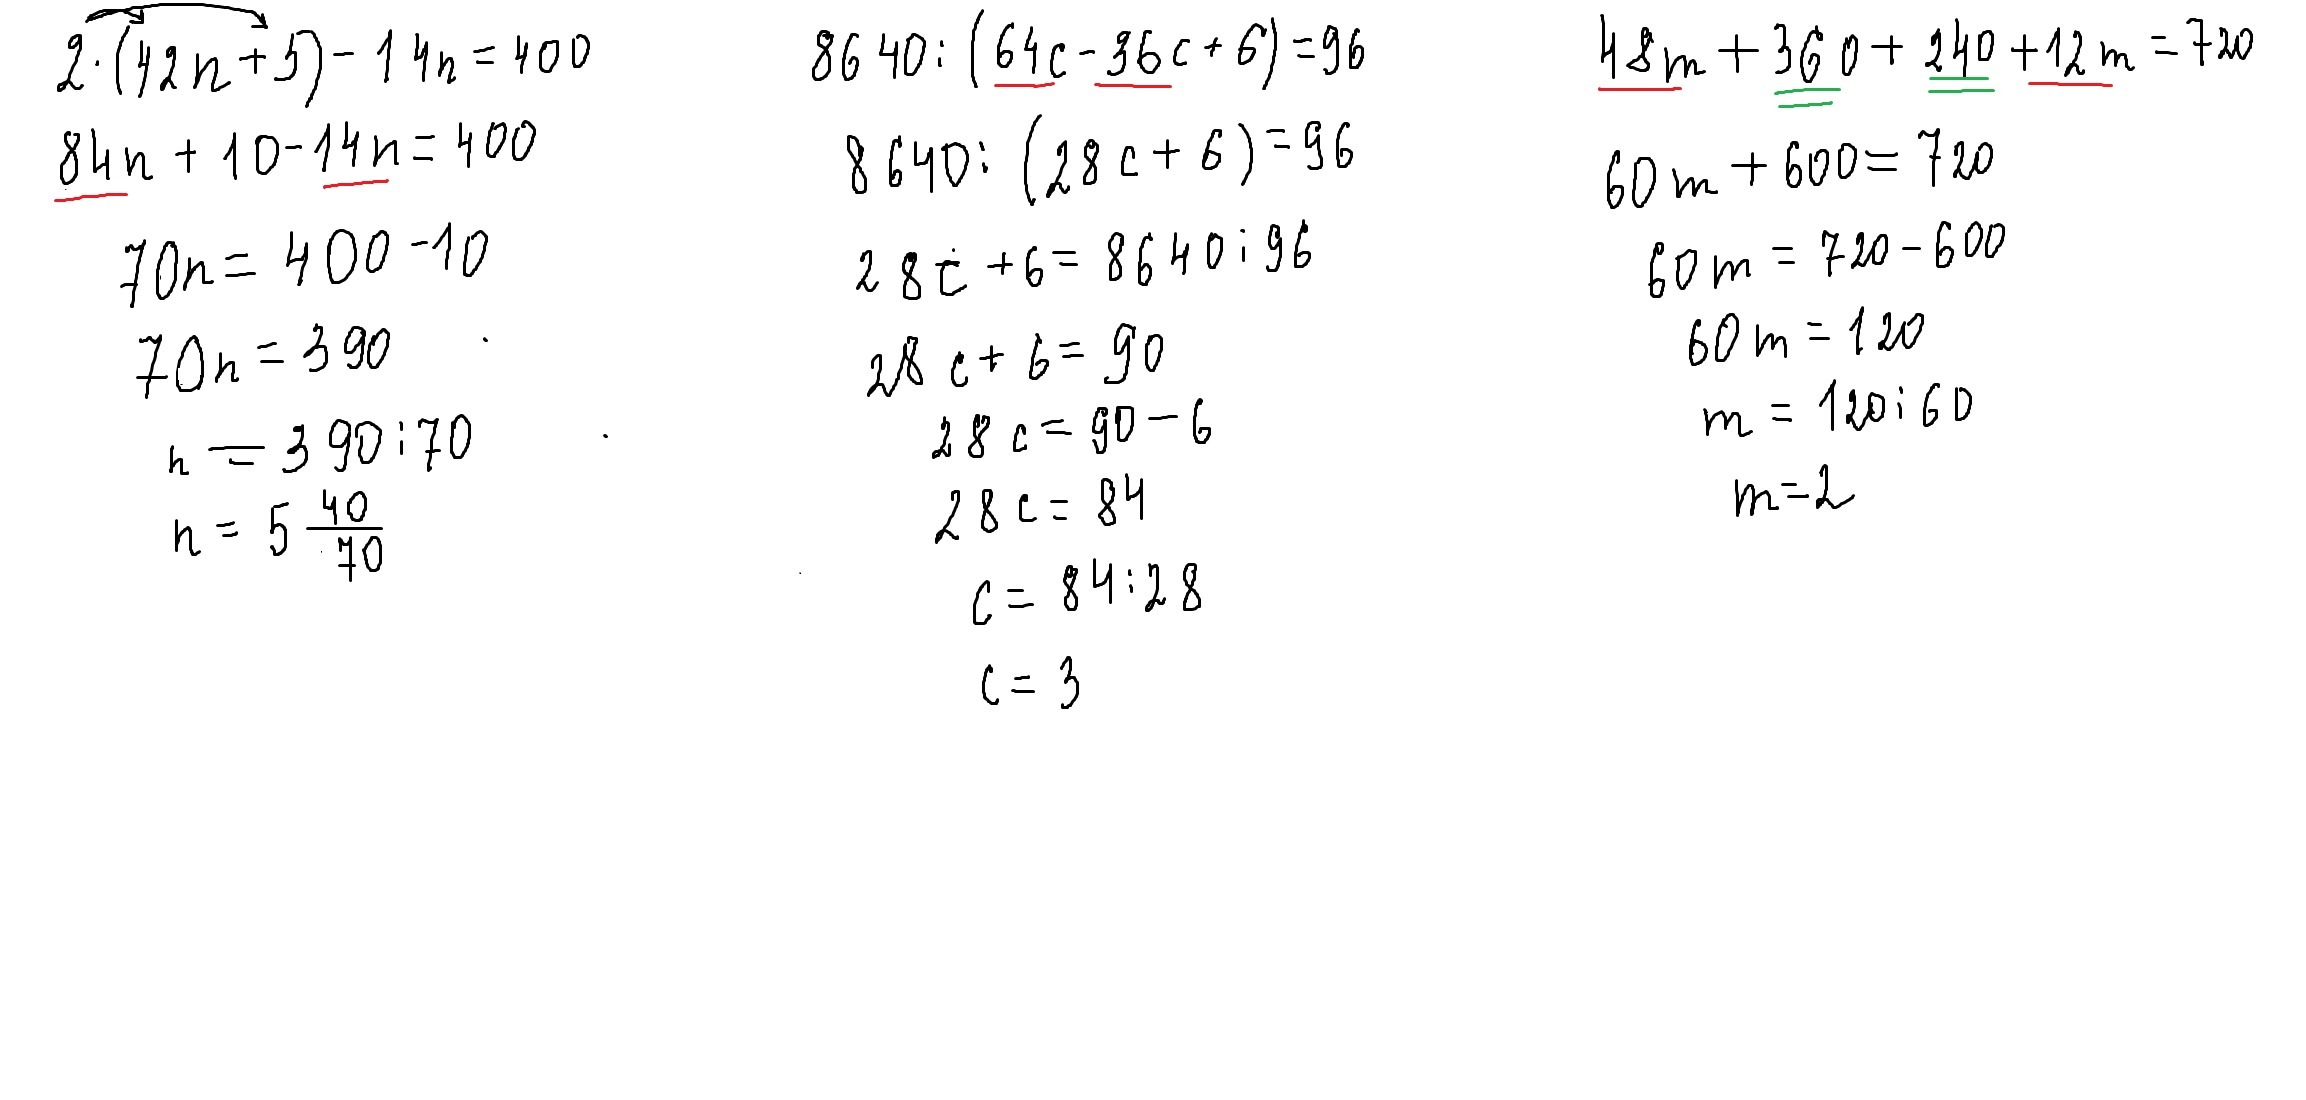 2·(42n+5)-14n=400
84n+10-14n=400
70n=400-10
70n=390
n=390:70
n=5 40/70
8640:(64c-36c+6)=96
8640:(28c+6)=96
28c+6=8640:96
28c+6=90
28c=90-6
28c=84
c=84:28
c=3
48m+360+240+12m=720
60m+600=720
60m=720-600
60m=120
m=120:60
m=2